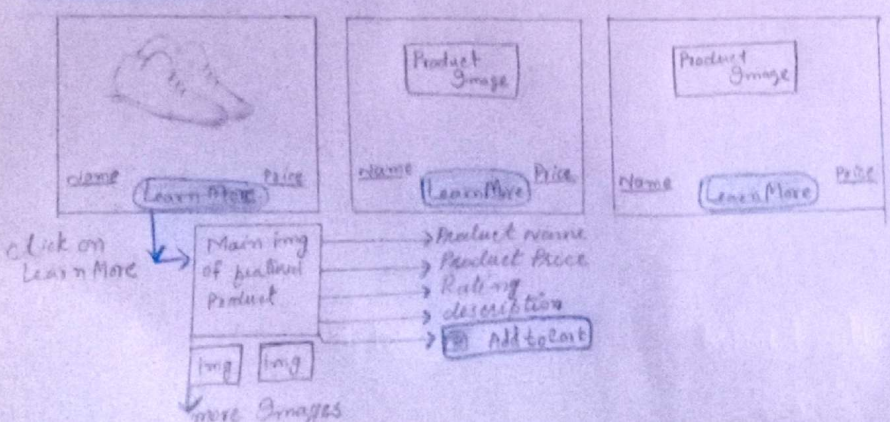 Product
Image
Product
Image
Name
Learn More
Price
Name
Learn More
Price
Name
Learn More
Price
Click on
Learn More
Main img
of
Product
Product name
Product Price
Rating
description
Add to Cart
img
img
more Images